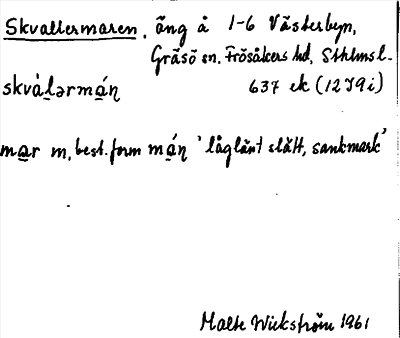 Skvallermaren, äng å 1-6 Västerbyn,
Gräsö sn. Frösåkers hd, Sthlmsl.
skvàlərmán 637 ek (12I9i)
mar m, best. form mán 'låglänt slätt, sankmark'
Malte Wickström 1961